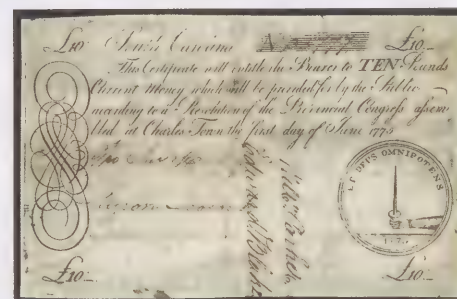 £10 South Carolina £10:-
This Certificate will entitle the Bearer to TEN Pounds
Current Money which will be provided for by the Public
according to a Resolution of the Provincial Congress assem
bled at Charles Town the first day of June 1775
Edward Blake
DEUS OMNIPOTENS
£10:- £10:-